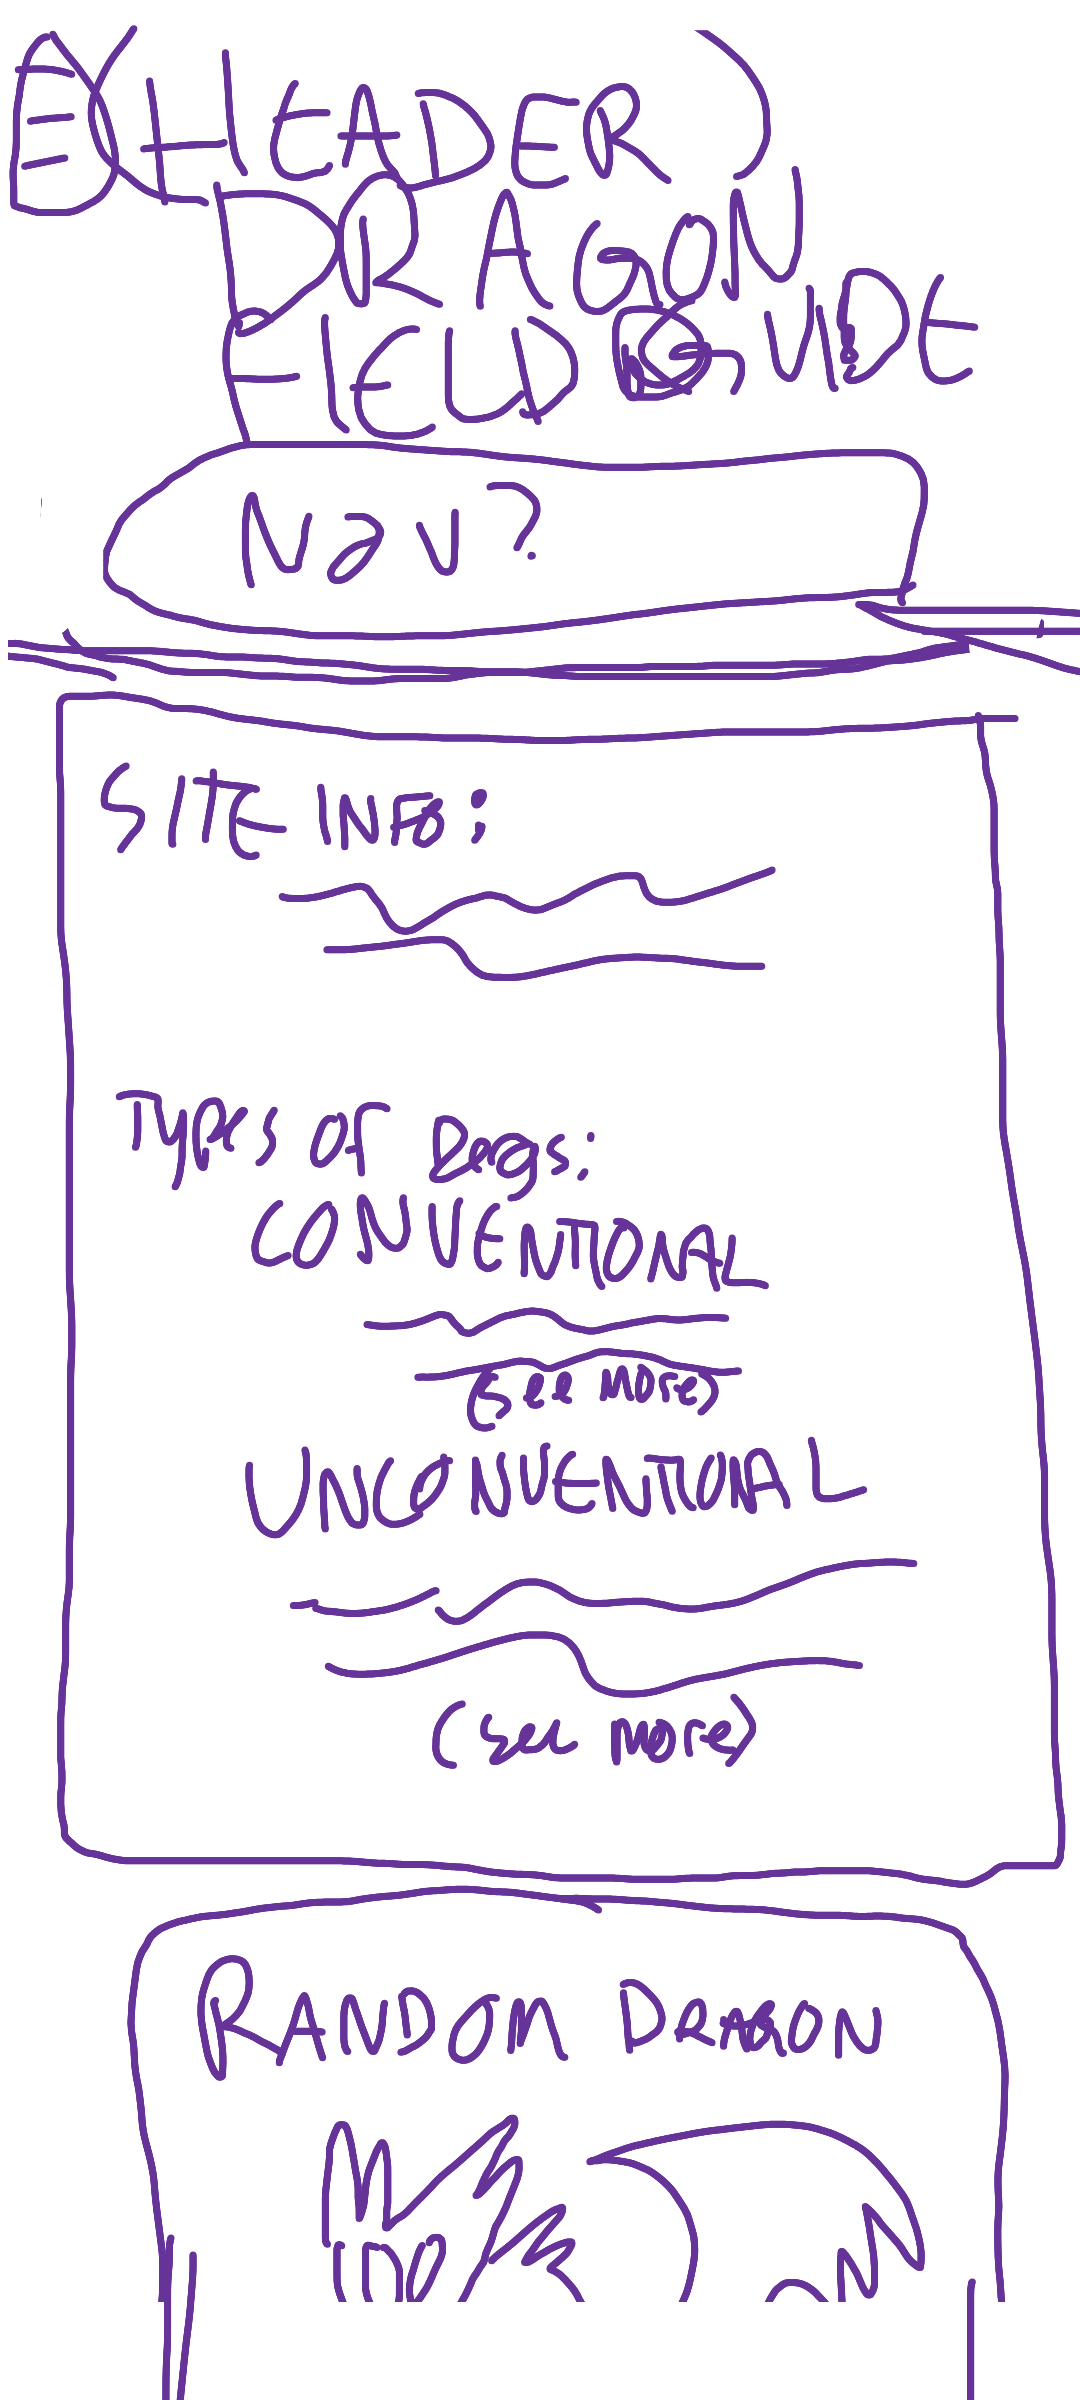 (HEADER)
DRAGON
FIELD GUIDE
Nav?
SITE INFO:
Types of Drags:
CONVENTIONAL
(see more)
UNCONVENTIONAL
(see more)
RANDOM DRAGON